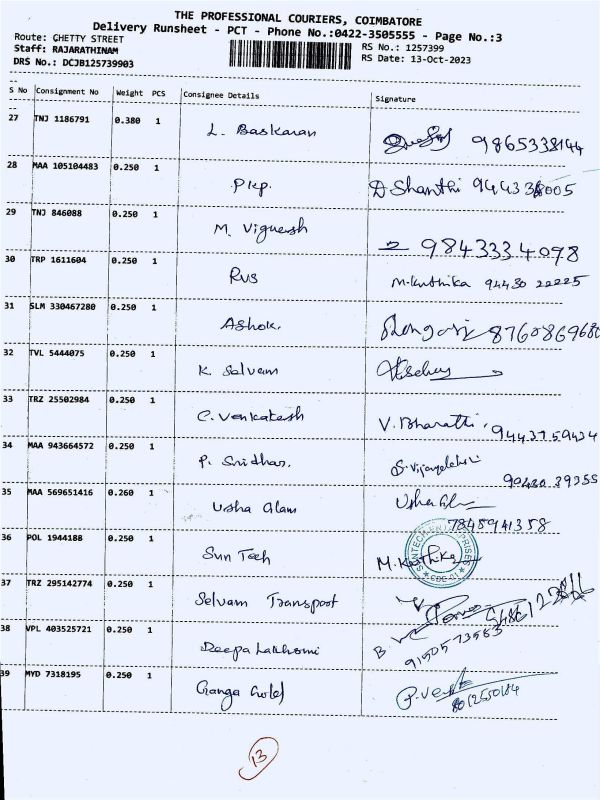 THE PROFESSIONAL COURIERS, COIMBATORE
Delivery Runsheet - PCT - Phone No.:0422-3505555 - Page No.:3
Route: CHETTY STREET
RS No.: 1257399
Staff: RAJARATHINAM
RS Date: 13-Oct-2023
DRS No.: DCJB125739903
S No Consignment No Weight PCS Consignee Details Signature
27 TNJ 1186791 0.380 1 L. Baskaran 9865338144
28 MAA 105104483 0.250 1 Pkp. D Shanthi
29 TNJ 846088 0.250 1 M. Vignesh 9843334098
30 TRP 1611604 0.250 1 RVS M.Karthika 94430 22225
31 SLM 330467280 0.250 1 Ashok. 8760869680
32 TVL 5444075 0.250 1 K. Selvam
33 TRZ 25502984 0.250 1 C. Venkatesh V. Bharathi. 9443759434
34 MAA 943664572 0.250 1 P. Sridhar. S. Vijayalakshmi
35 MAA 569651416 0.260 1 Usha Glam Usha Glam 7845941358
36 POL 1944188 0.250 1 Sun Tech M. Karthika
SUNTECH ENTERPRISES
37 TRZ 295142774 0.250 1 Selvam Transport
38 VPL 403525721 0.250 1 Deepa Lakshmi
39 MYD 7318195 0.250 1 Ganga Gold P. Venk
13